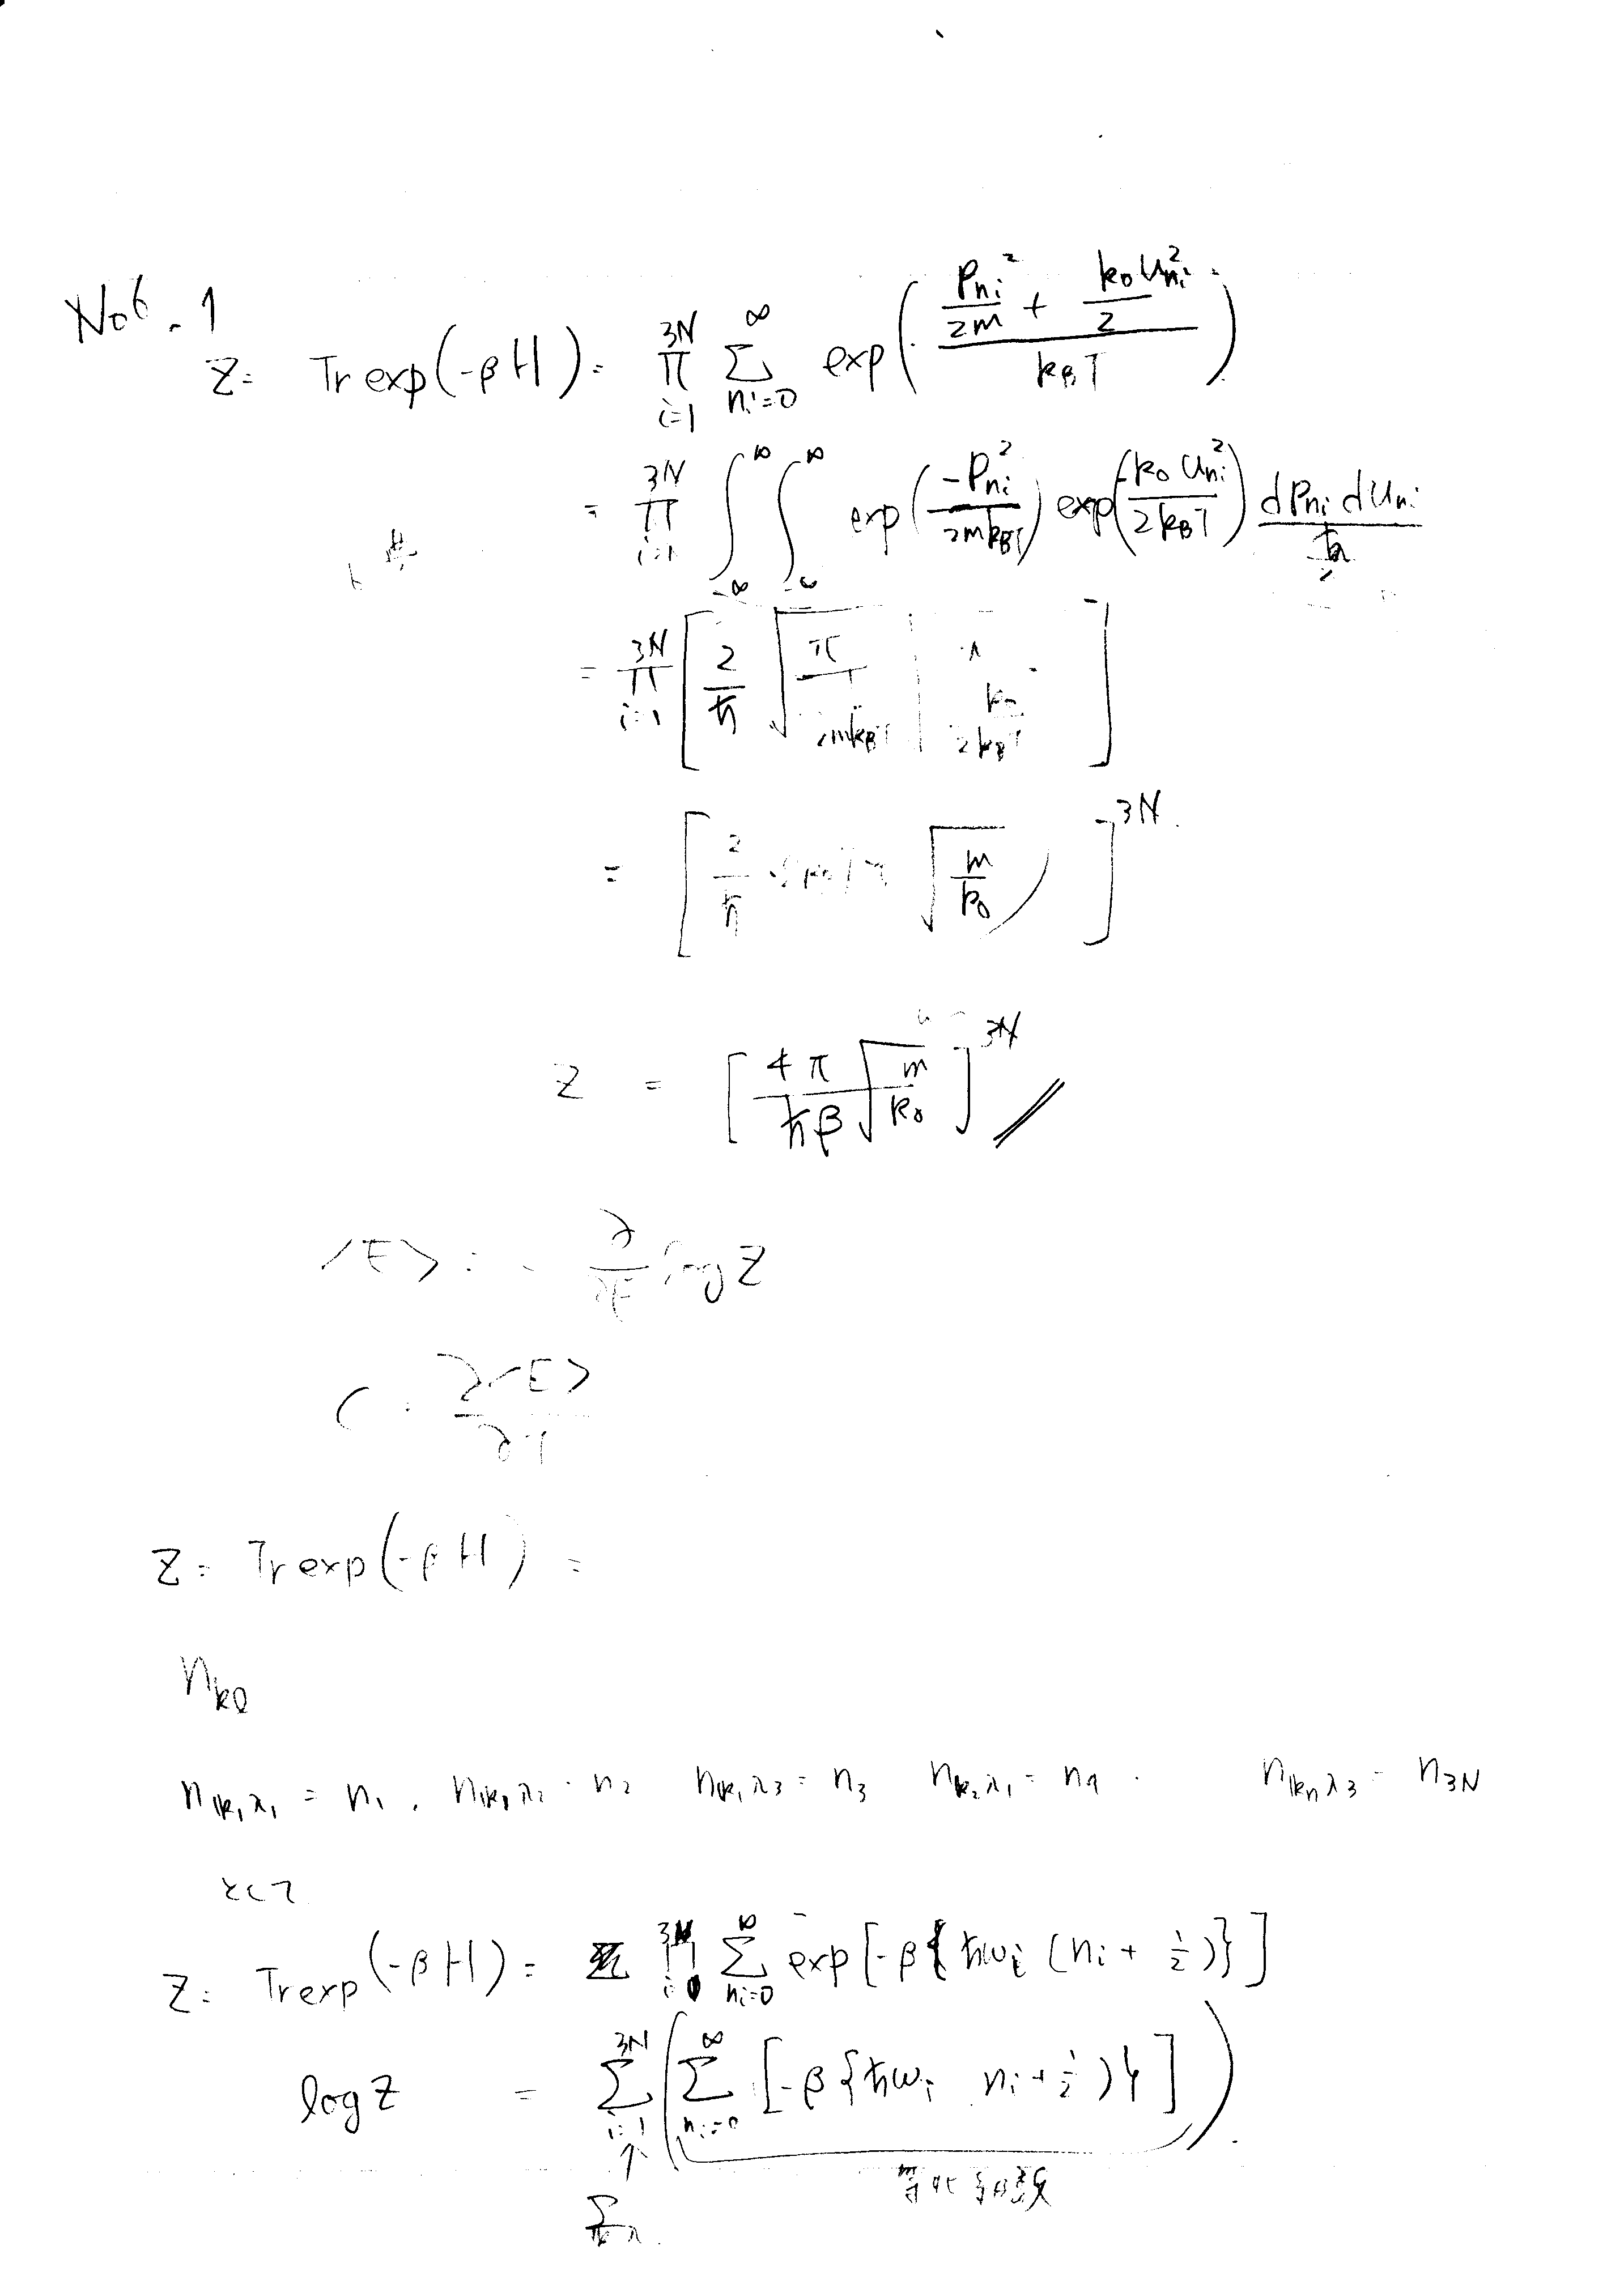 No6.1
Z = Tr exp(-βH) = ∏_{i=1}^{3N} Σ_{ni=0}^{∞} exp(- (Pni²/2m + k₀Uni²/2) / kBT)
= ∏_{i=1}^{3N} ∫_{-∞}^{∞} ∫_{-∞}^{∞} exp(-Pni²/2mkBT) exp(-k₀Uni²/2kBT) dPni dUni / ħ
= ∏_{i=1}^{3N} [ 2/ħ √ π / 2mkBT k₀ / 2kBT ]
= [ 2/ħ √(m/k₀) ]^{3N}
Z = [ 4π/ħβ √(m/k₀) ]^{3N}
<E> = - ∂/∂β log Z
C = ∂<E>/∂T
Z = Tr exp(-βH) =
n_{kl}
n_{𝕜₁λ₁} = n₁, n_{𝕜₁λ₂} = n₂ n_{𝕜₁λ₃} = n₃ n_{𝕜₂λ₁} = n₄ . n_{𝕜nλ₃} = n_{3N}
として
Z = Tr exp(-βH) = ∏^{3N} Σ_{ni=0}^{∞} exp[-β{ħωi (ni + ½)}]
log Z = Σ_{i=1}^{3N} ( Σ_{ni=0}^{∞} [-β{ħωi ni + ½)}] )
↑ 等比級数
Σ_{𝕜λ}